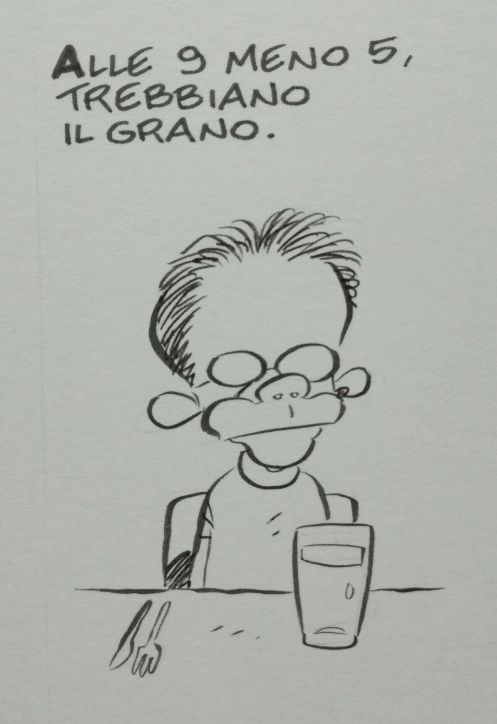 ALLE 9 MENO 5,
TREBBIANO
IL GRANO.